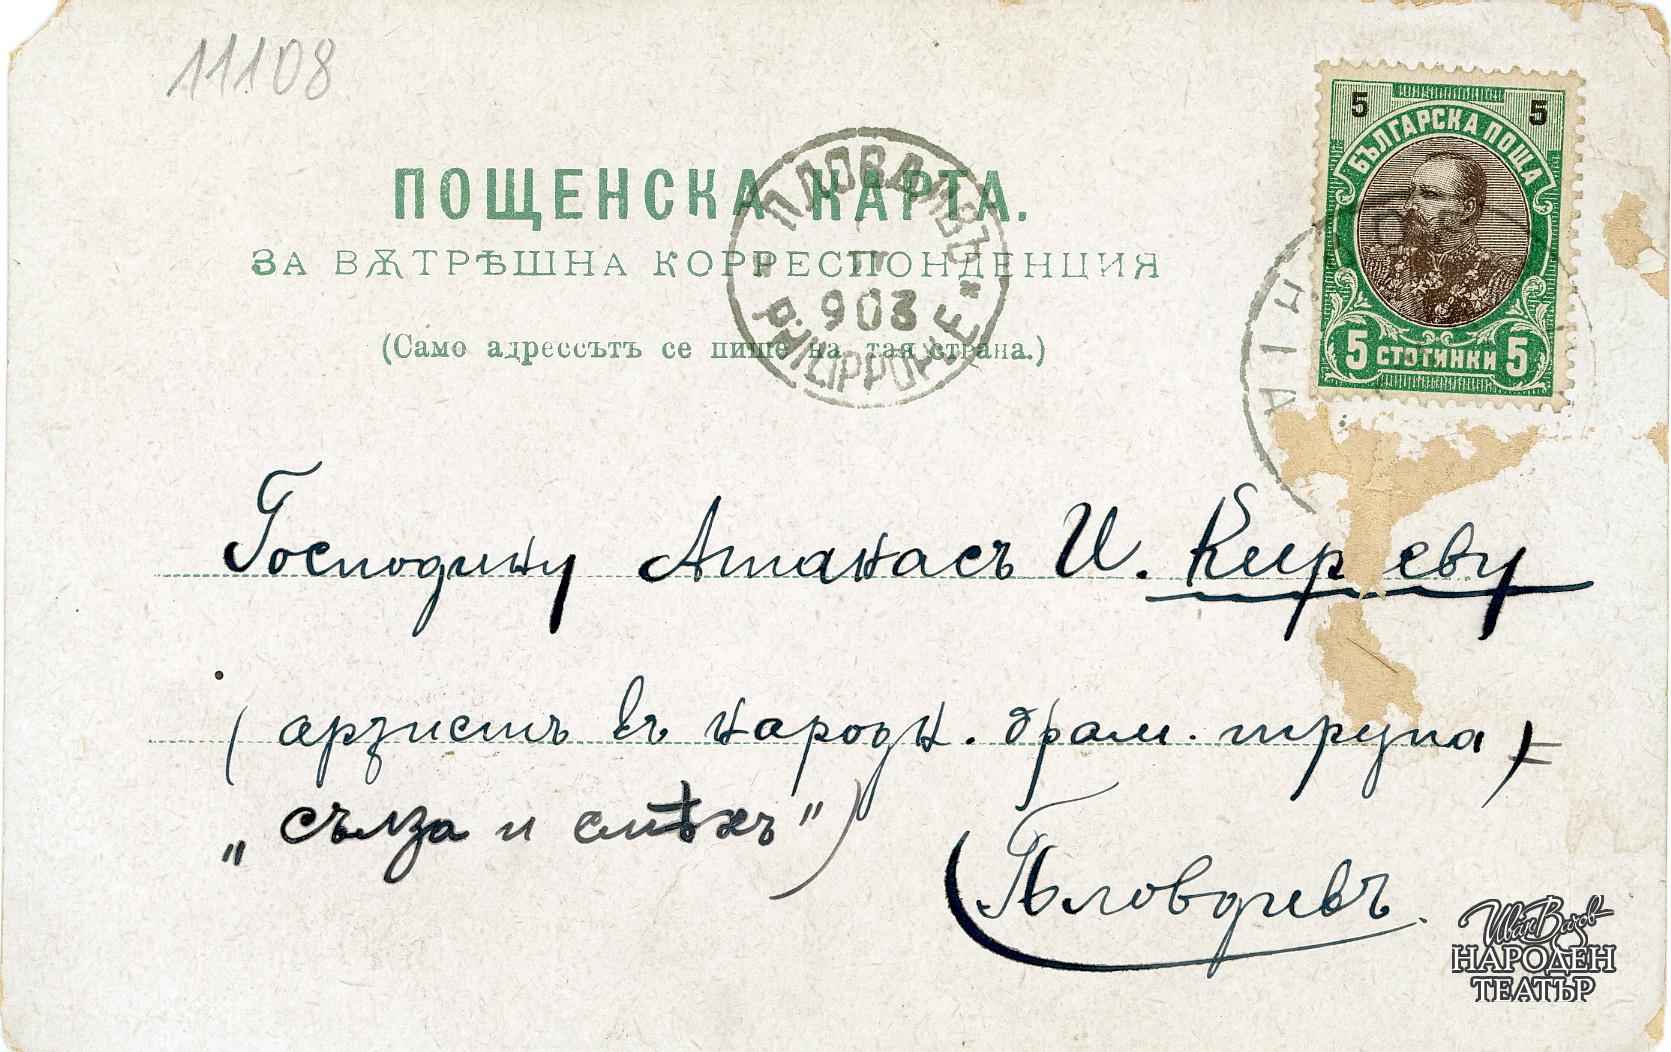 11108
ПОЩЕНСКА КАРТА.
ЗА ВѪТРѢШНА КОРРЕСПОНДЕНЦИЯ
(Само адрессътъ се пише на тая страна.)
ПЛОВДИВЪ
903
PHILIPPOPOLE
5 5
БЪЛГАРСКА ПОЩА
5 СТОТИНКИ 5
Господину Атанасъ И. Кирчеву
(артистъ въ народн. драм. трупа
„сълза и смѣхъ")
Пловдивъ.
Иван Вазов
НАРОДЕН
ТЕАТЪР